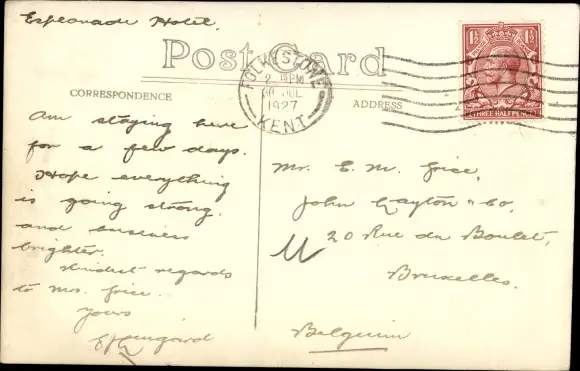 Esplanade Hotel.
Post Card
CORRESPONDENCE
ADDRESS
FOLKESTONE
2 15 PM
JUL
1927
KENT
1½ 1½
THREE HALFPENCE
Am staying here
for a few days.
Hope everything
is going strong.
and business
brighter.
Kindest regards
to Mrs. Grice.
Yours
Mr. E. M. Grice,
John Gayton & Co,
20 Rue du Boulet,
Bruxelles.
Belguim